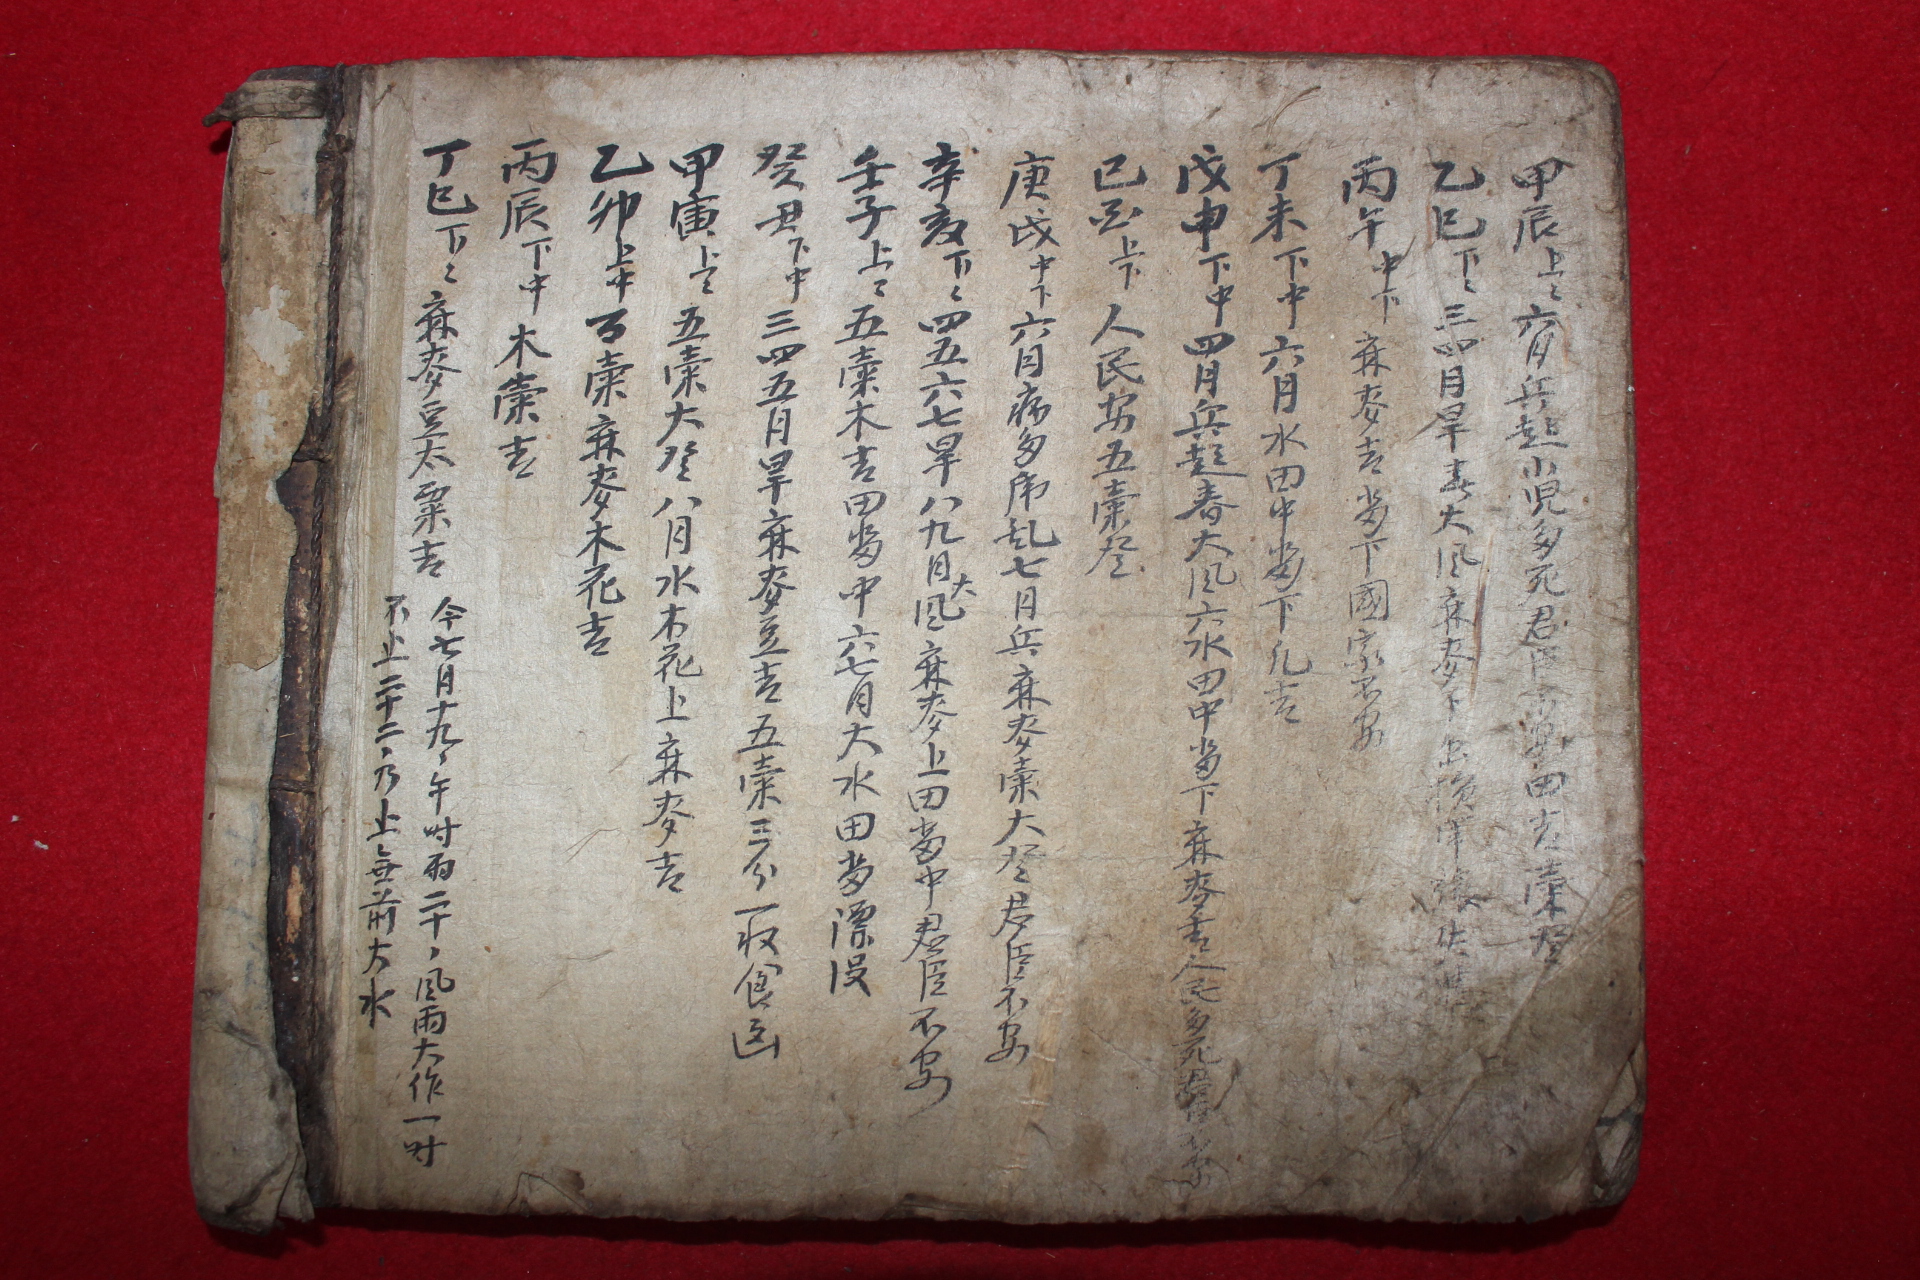 甲辰上〻六月兵起小児多死君臣不安田吉稾登
乙巳下〻三四月旱春大風麻麥下
丙午中下麻麥吉畓下國家不安
丁未下中六月水田中畓下凡吉
戊申下中四月兵起春大風六水田中畓下麻麥吉人民多死
己酉上下人民安五稾登
庚戌中下六月病多席乱七月兵麻麥稾大登君臣不安
辛亥下〻四五六七旱八九月大風麻麥上田畓中君臣不安
壬子上〻五稾木吉田畓中六七月大水田畓漂没
癸丑下中三四五月旱麻麥豆吉五稾三分一収食凶
甲寅上〻五稾大登八月水木花上麻麥吉
乙卯上中百稾麻麥木花吉
丙辰下中木稾吉
丁巳下〻麻麥豆太粟吉
今七月十九丶午时雨二十丶風雨大作一时
不止二十二丶乃止無前大水